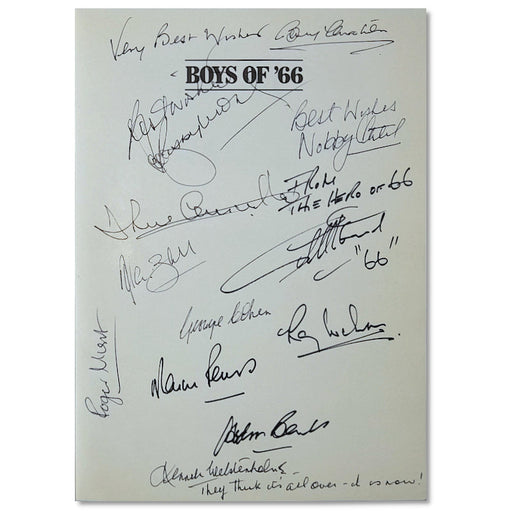 Very Best Wishes
BOYS OF '66
Best Wishes
Best Wishes
Nobby Stiles
FROM
THE HERO OF 66
"66"
George Cohen
Ray Wilson
Roger Hunt
Martin Peters
Gordon Banks
Kenneth Wolstenholme
They think it's all over - it is now!